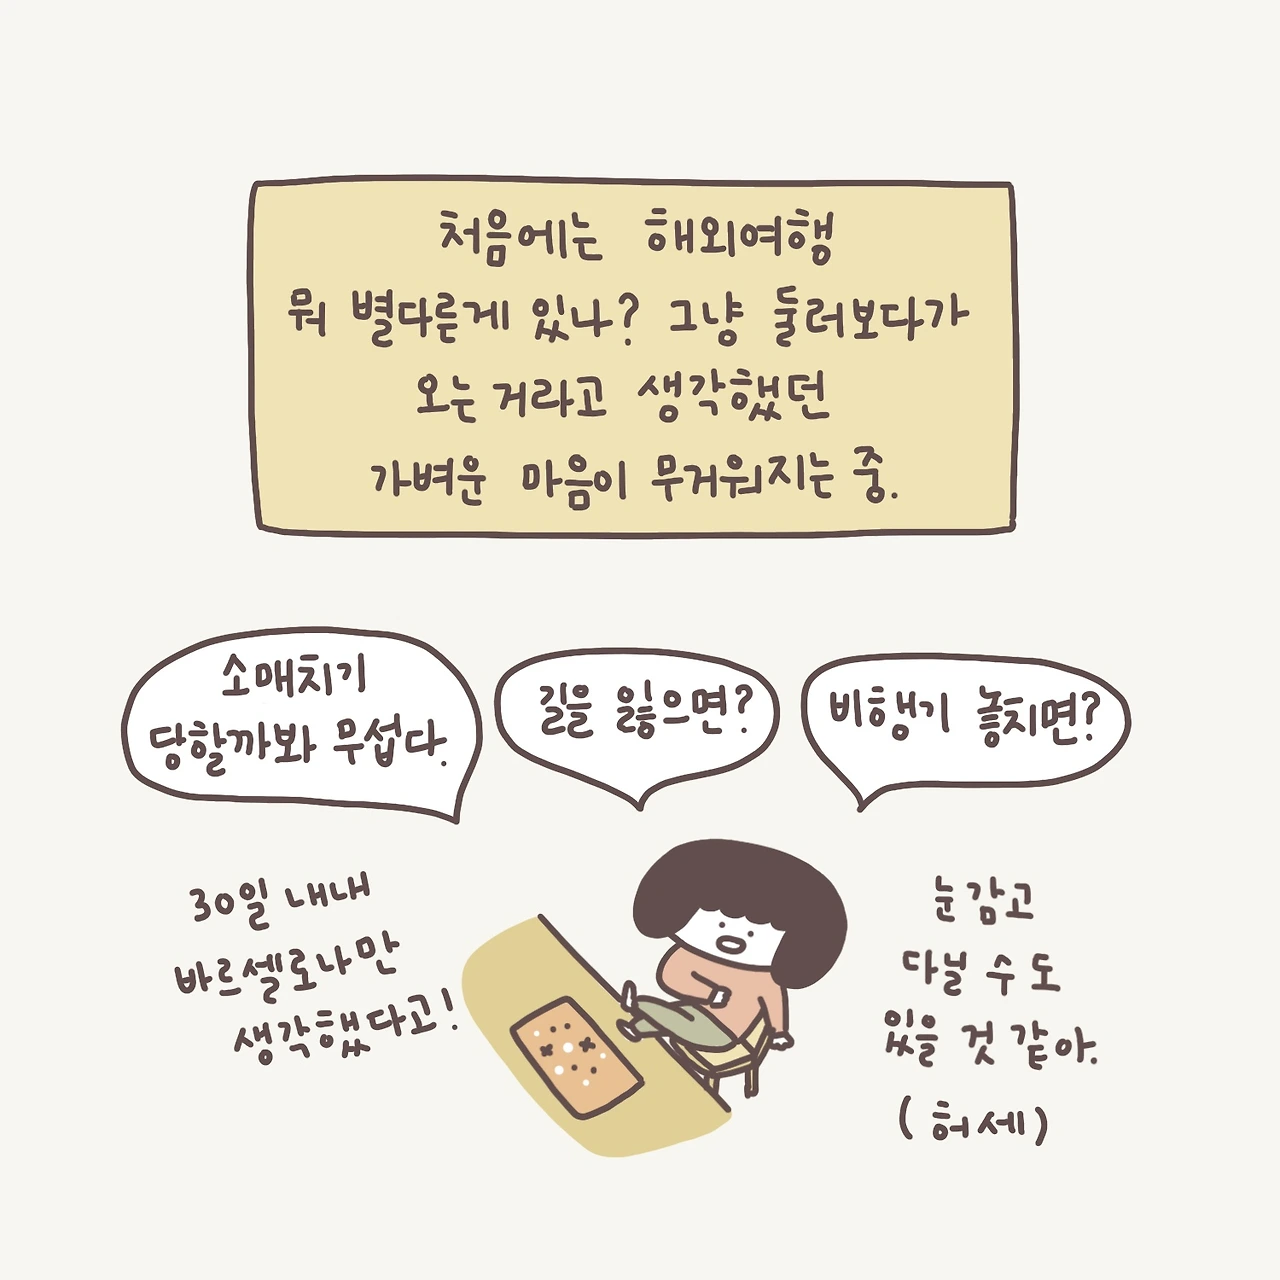 처음에는 해외여행
뭐 별다른게 있나? 그냥 둘러보다가
오는 거라고 생각했던
가벼운 마음이 무거워지는 중.
소매치기
당할까봐 무섭다.
길을 잃으면?
비행기 놓치면?
30일 내내
바르셀로나만
생각했다고!
눈감고
다닐 수 도
있을 것 같아.
(허세)